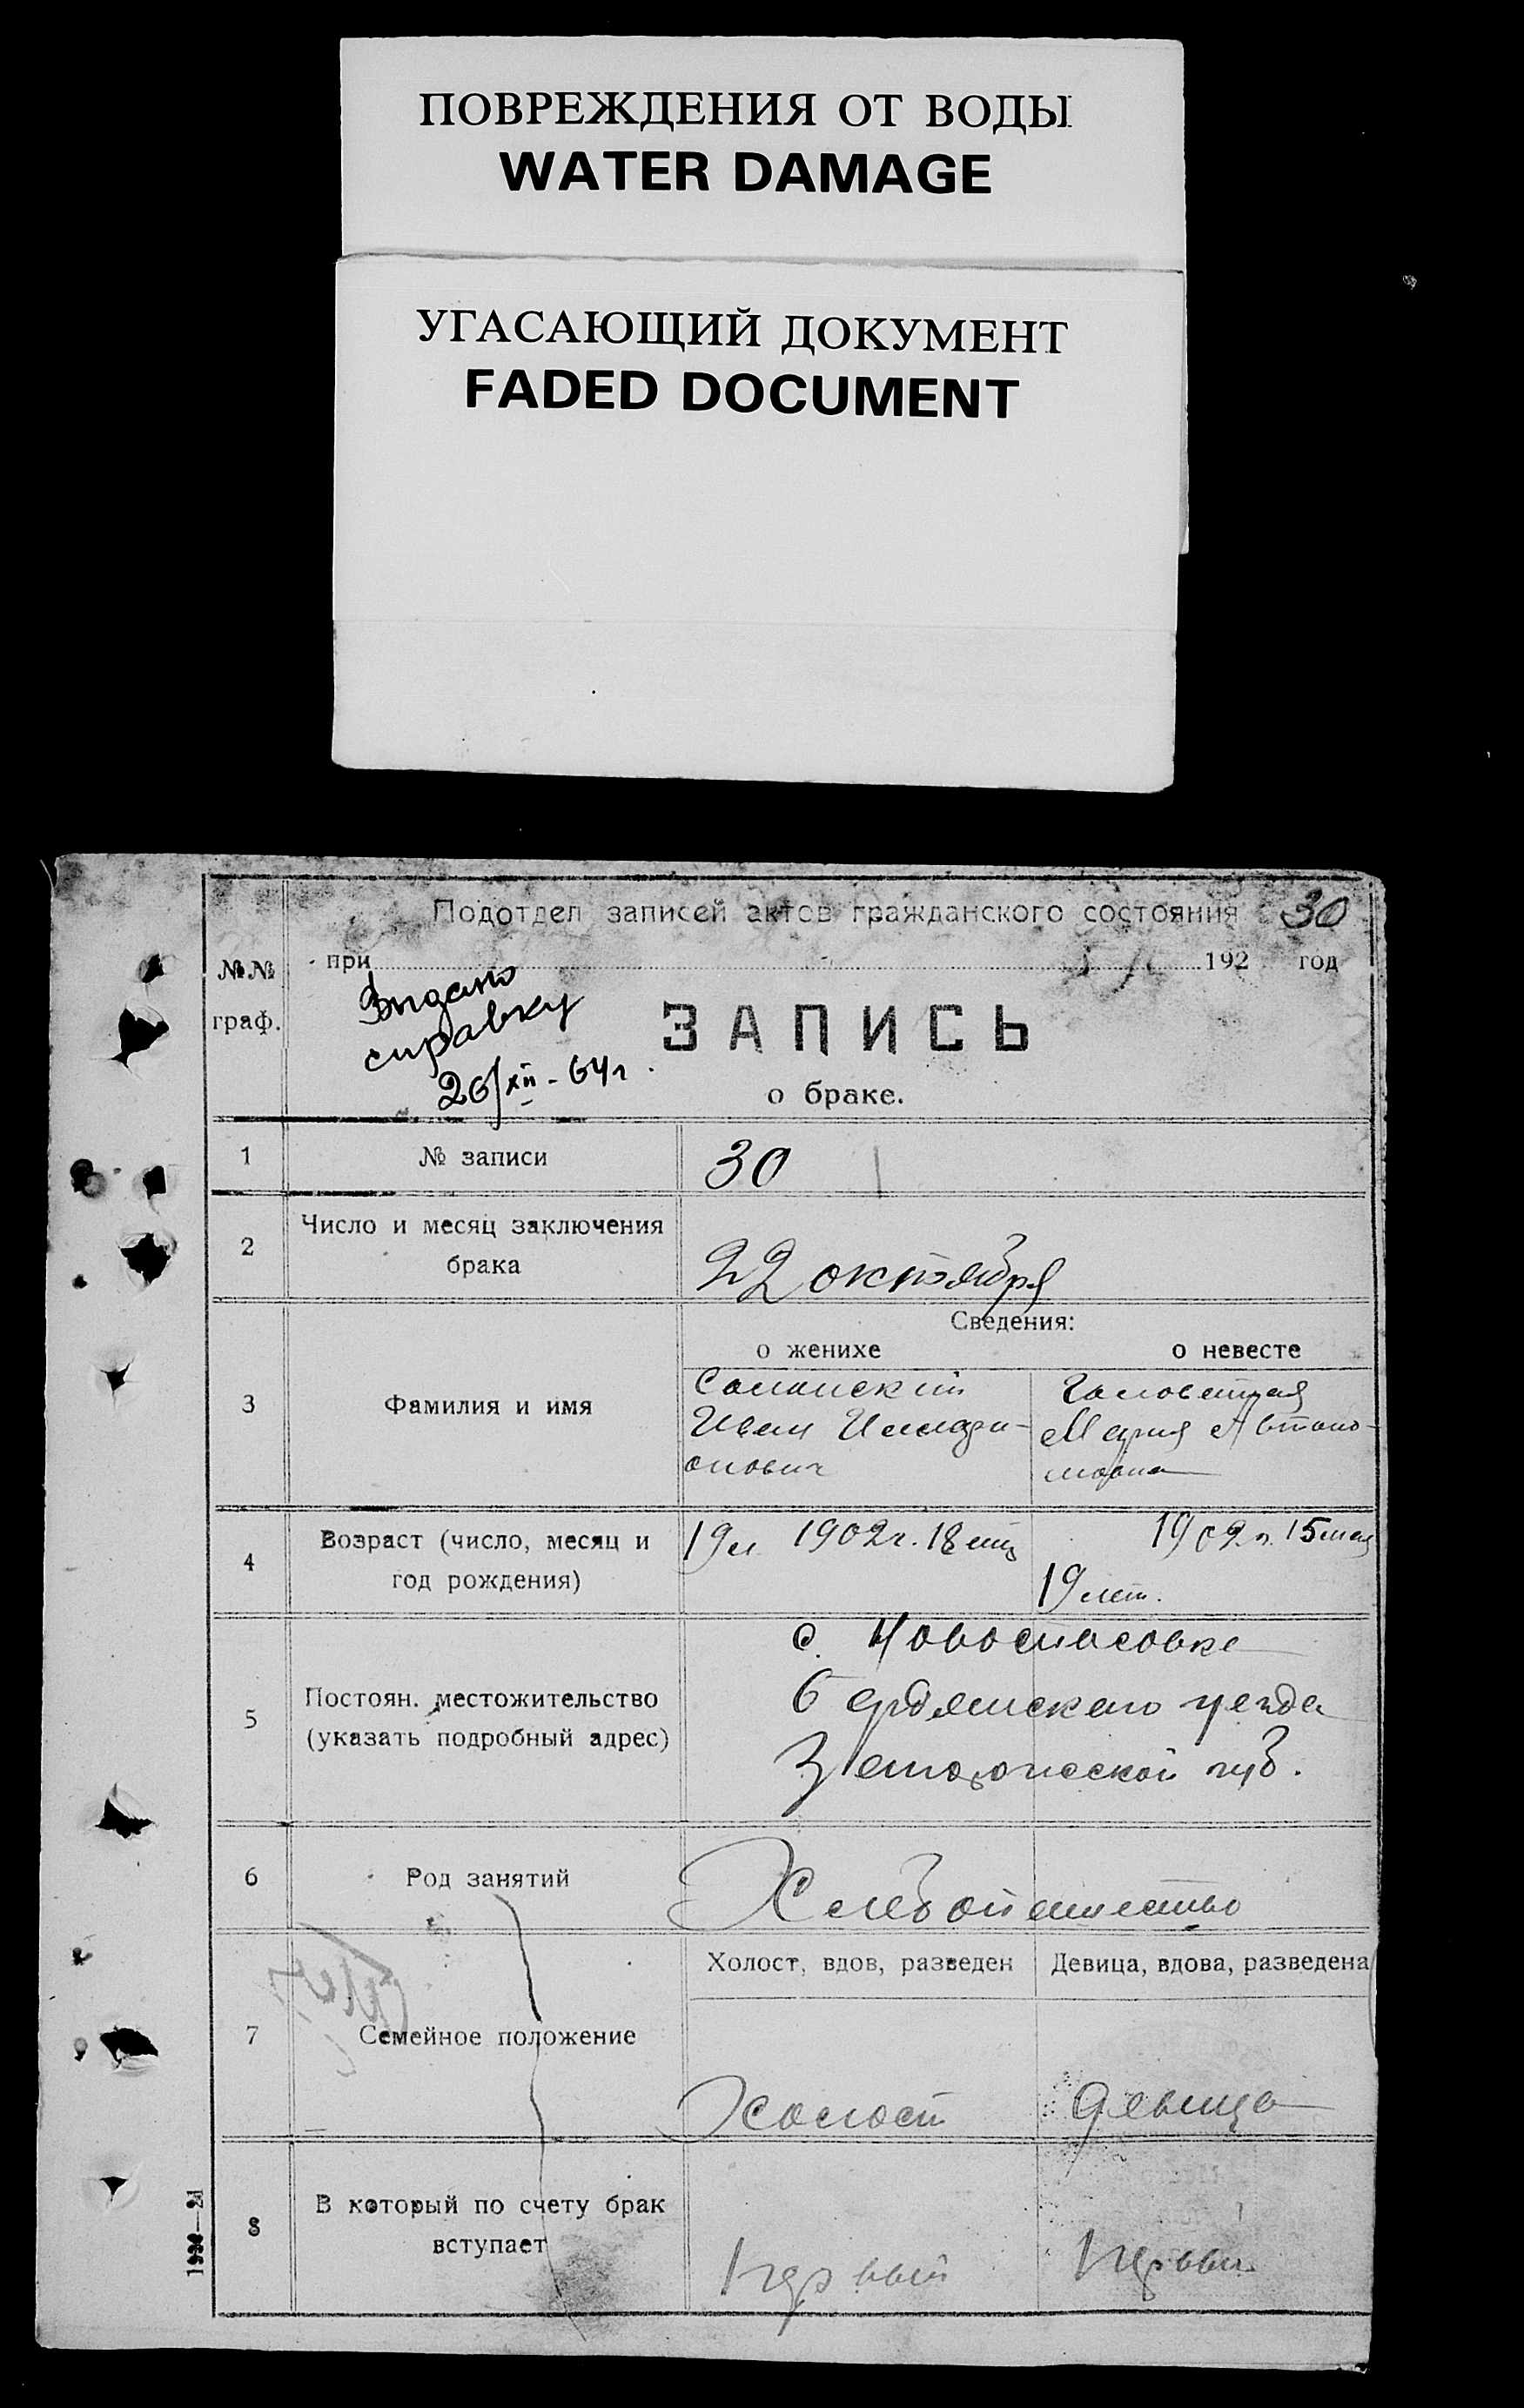 ПОВРЕЖДЕНИЯ ОТ ВОДЫ
WATER DAMAGE
УГАСАЮЩИЙ ДОКУМЕНТ
FADED DOCUMENT
Подотдел записей актов гражданского состояния 30
№№ при 192 год
граф.
справку
26/XII - 64 г.
ЗАПИСЬ
о браке.
1 № записи 30
2 Число и месяц заключения
брака
22 октября
Сведения:
о женихе о невесте
3 Фамилия и имя
Иван
онович
Мария Автоно-
мовна
4 Возраст (число, месяц и
год рождения)
1902 г. 18
1902 г. 15 мая
19 лет.
5 Постоян. местожительство
(указать подробный адрес)
с. Новоспасовка
Бердянского уезда
Запорожской губ.
6 Род занятий Хлебопашество
7 Семейное положение
Холост, вдов, разведен Девица, вдова, разведена
Холост девица
8 В который по счету брак
вступает
первый первый